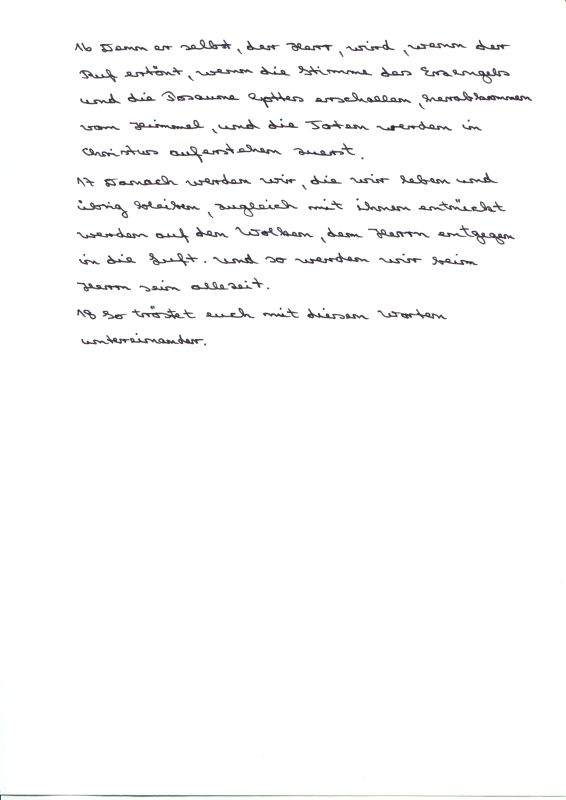 16 Denn er selbst, der Herr, wird, wenn der
Ruf ertönt, wenn die Stimme des Erzengels
und die Posaune Gottes erschallen, herabkommen
vom Himmel, und die Toten werden in
Christus auferstehen zuerst.
17 Danach werden wir, die wir leben und
übrig bleiben, zugleich mit ihnen entrückt
werden auf den Wolken, dem Herrn entgegen
in die Luft. Und so werden wir beim
Herrn sein allezeit.
18 So tröstet euch mit diesen Worten
untereinander.